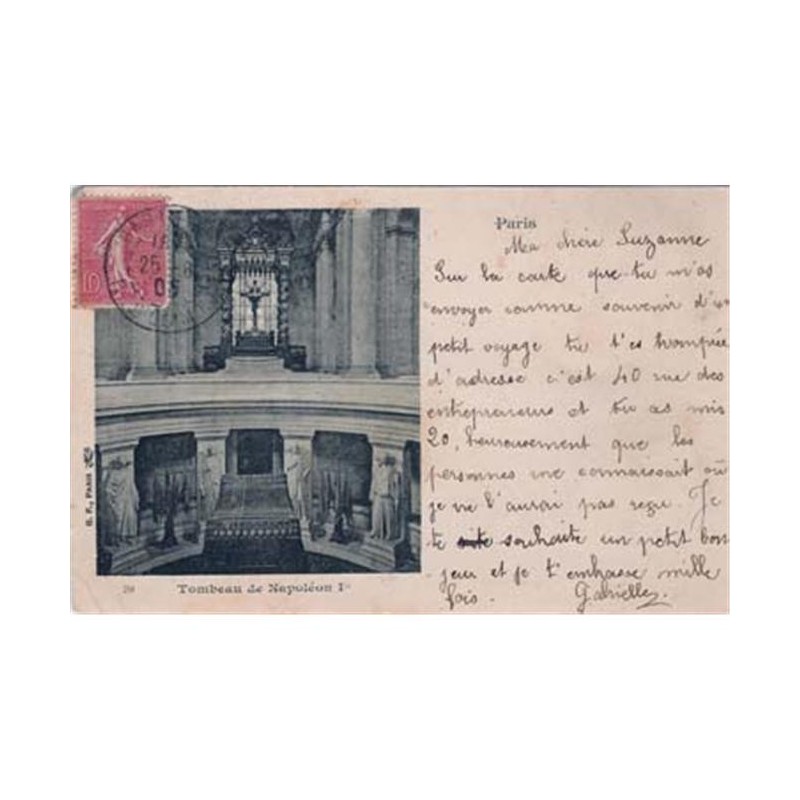 Paris
Ma chère Suzanne
Sur la carte que tu m'as
envoyer comme souvenir d'un
petit voyage tu t'es trompée
d'adresse c'est 40 rue des
entrepreneurs et tu as mis
20, heureusement que les
personnes me connaissait ou
je ne l'aurai pas reçu. Je
te souhaite un petit bon
jour et je t'embrasse mille
fois. Gabrielle
10
25
05
B. F., PARIS
29 Tombeau de Napoléon Ier